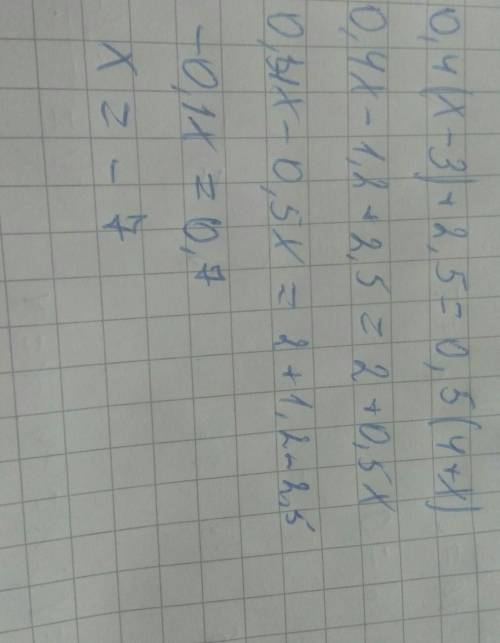 0,4(x-3)+2,5=0,5(4+x)
0,4x-1,2+2,5=2+0,5x
0,4x-0,5x=2+1,2-2,5
-0,1x=0,7
x=-7